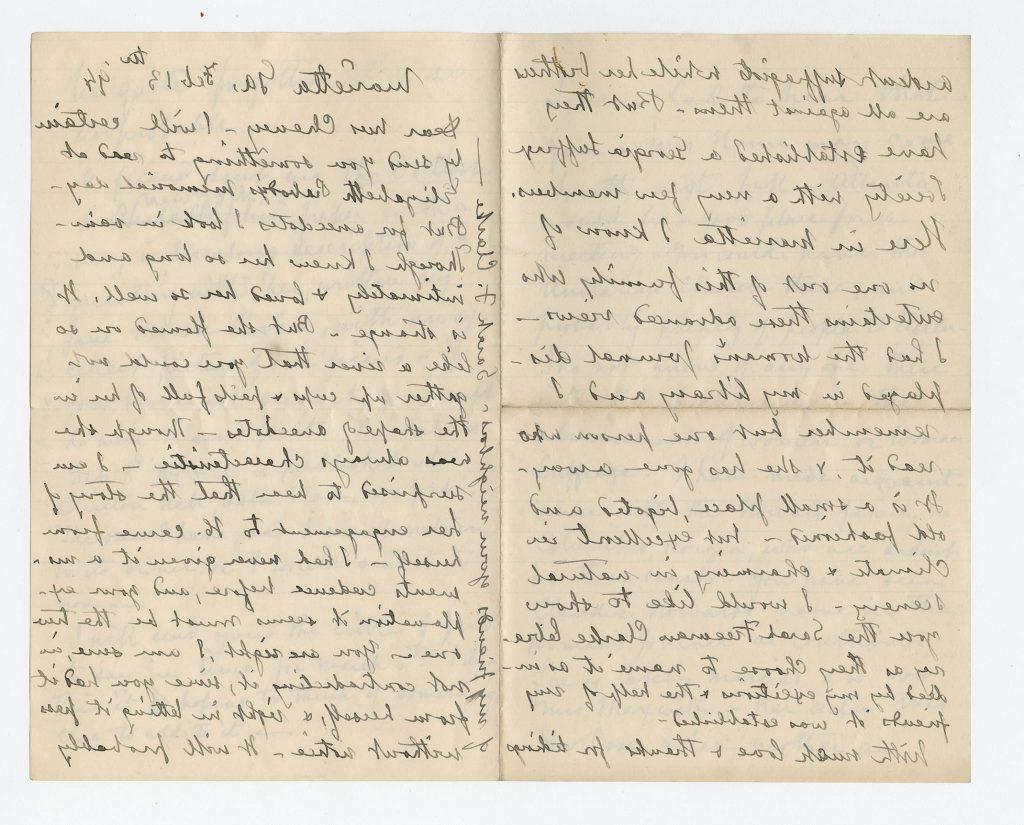 Marietta Ga, Feb 13th '94
Dear Mrs Cheney - I will certain
ly send you something to read at
Elizabeth Peabody's memorial day -
But for anecdotes I look in vain -
Though I knew her so long and
intimately & loved her so well, It
is strange - But she flowed on so
like a river that you could not
gather up cups & pails full of her in
the shape of anecdotes - Though she
was always characteristic - I am
surprised to hear that the story of
her engagement to H. came from
herself - I had never given it a mo-
ments credence before, and your ex-
planation it seems must be the true
one - You are right, I am sure, in
not contradicting it, since you had it
from herself, & right in letting it pass
without notice - It will probably
ardent suffragists while her brothers
are all against them - But they
have established a Georgia Suffrage
Society with a very few members.
Here in Marietta I know of
no one out of this family who
entertains these advanced views -
I had the Woman's Journal dis-
played in my library and I
remember but one person who
read it, & she has gone away -
It is a small place, bigoted and
old fashioned - but excellent in
Climate & charming in natural
scenery - I would like to show
you the Sarah Freeman Clarke Libra-
ry as they choose to name it as in-
ded by my exertions & the help of my
friends it was established -
With much love & thanks for tidings
of my friends your neighbors - Sarah F. Clarke —